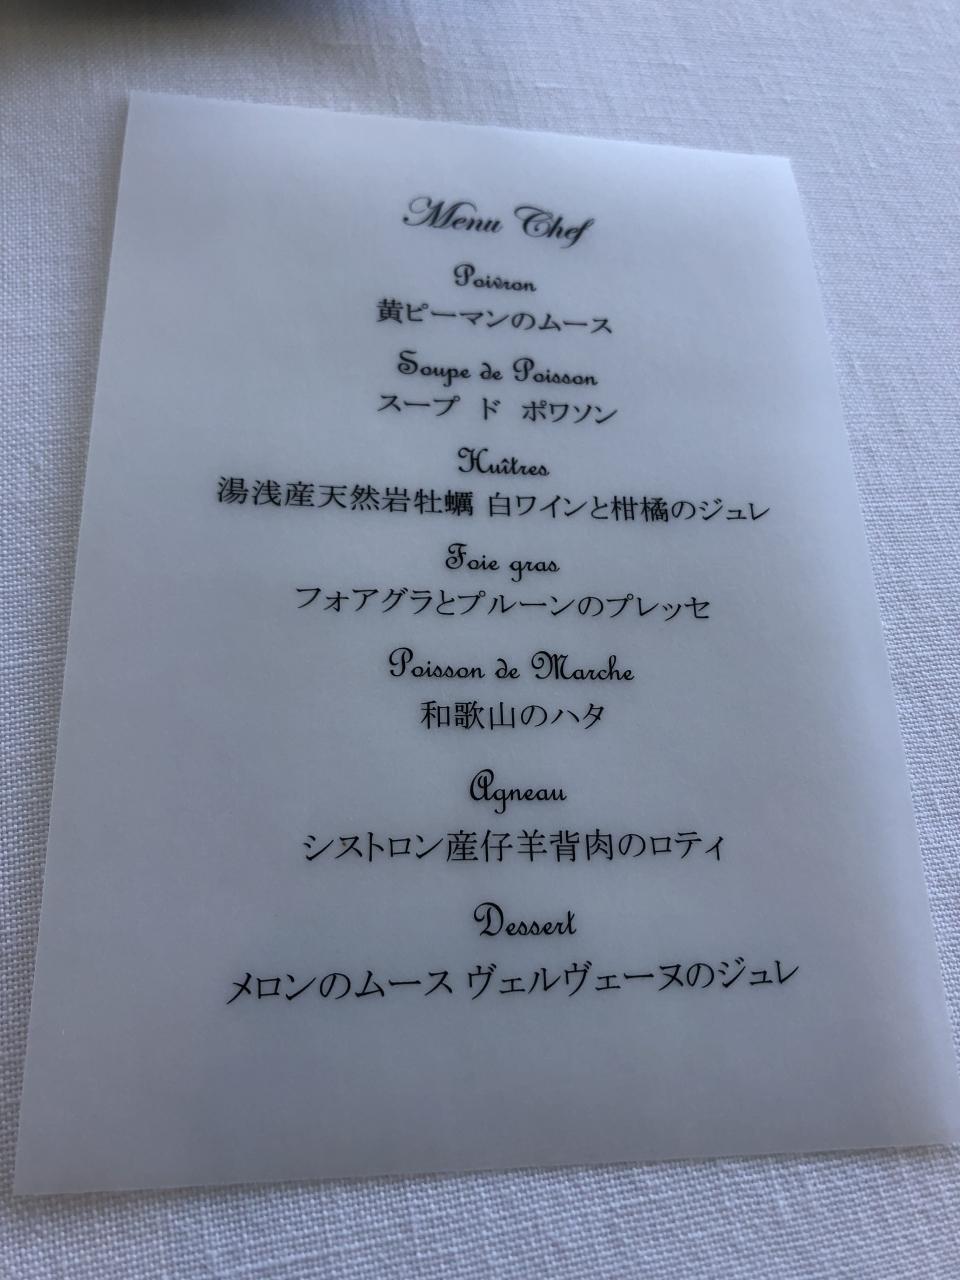 Menu Chef
Poivron
黄ピーマンのムース
Soupe de Poisson
スープ ド ポワソン
Huîtres
湯浅産天然岩牡蠣 白ワインと柑橘のジュレ
Foie gras
フォアグラとプルーンのプレッセ
Poisson de Marche
和歌山のハタ
Agneau
シストロン産仔羊背肉のロティ
Dessert
メロンのムース ヴェルヴェーヌのジュレ